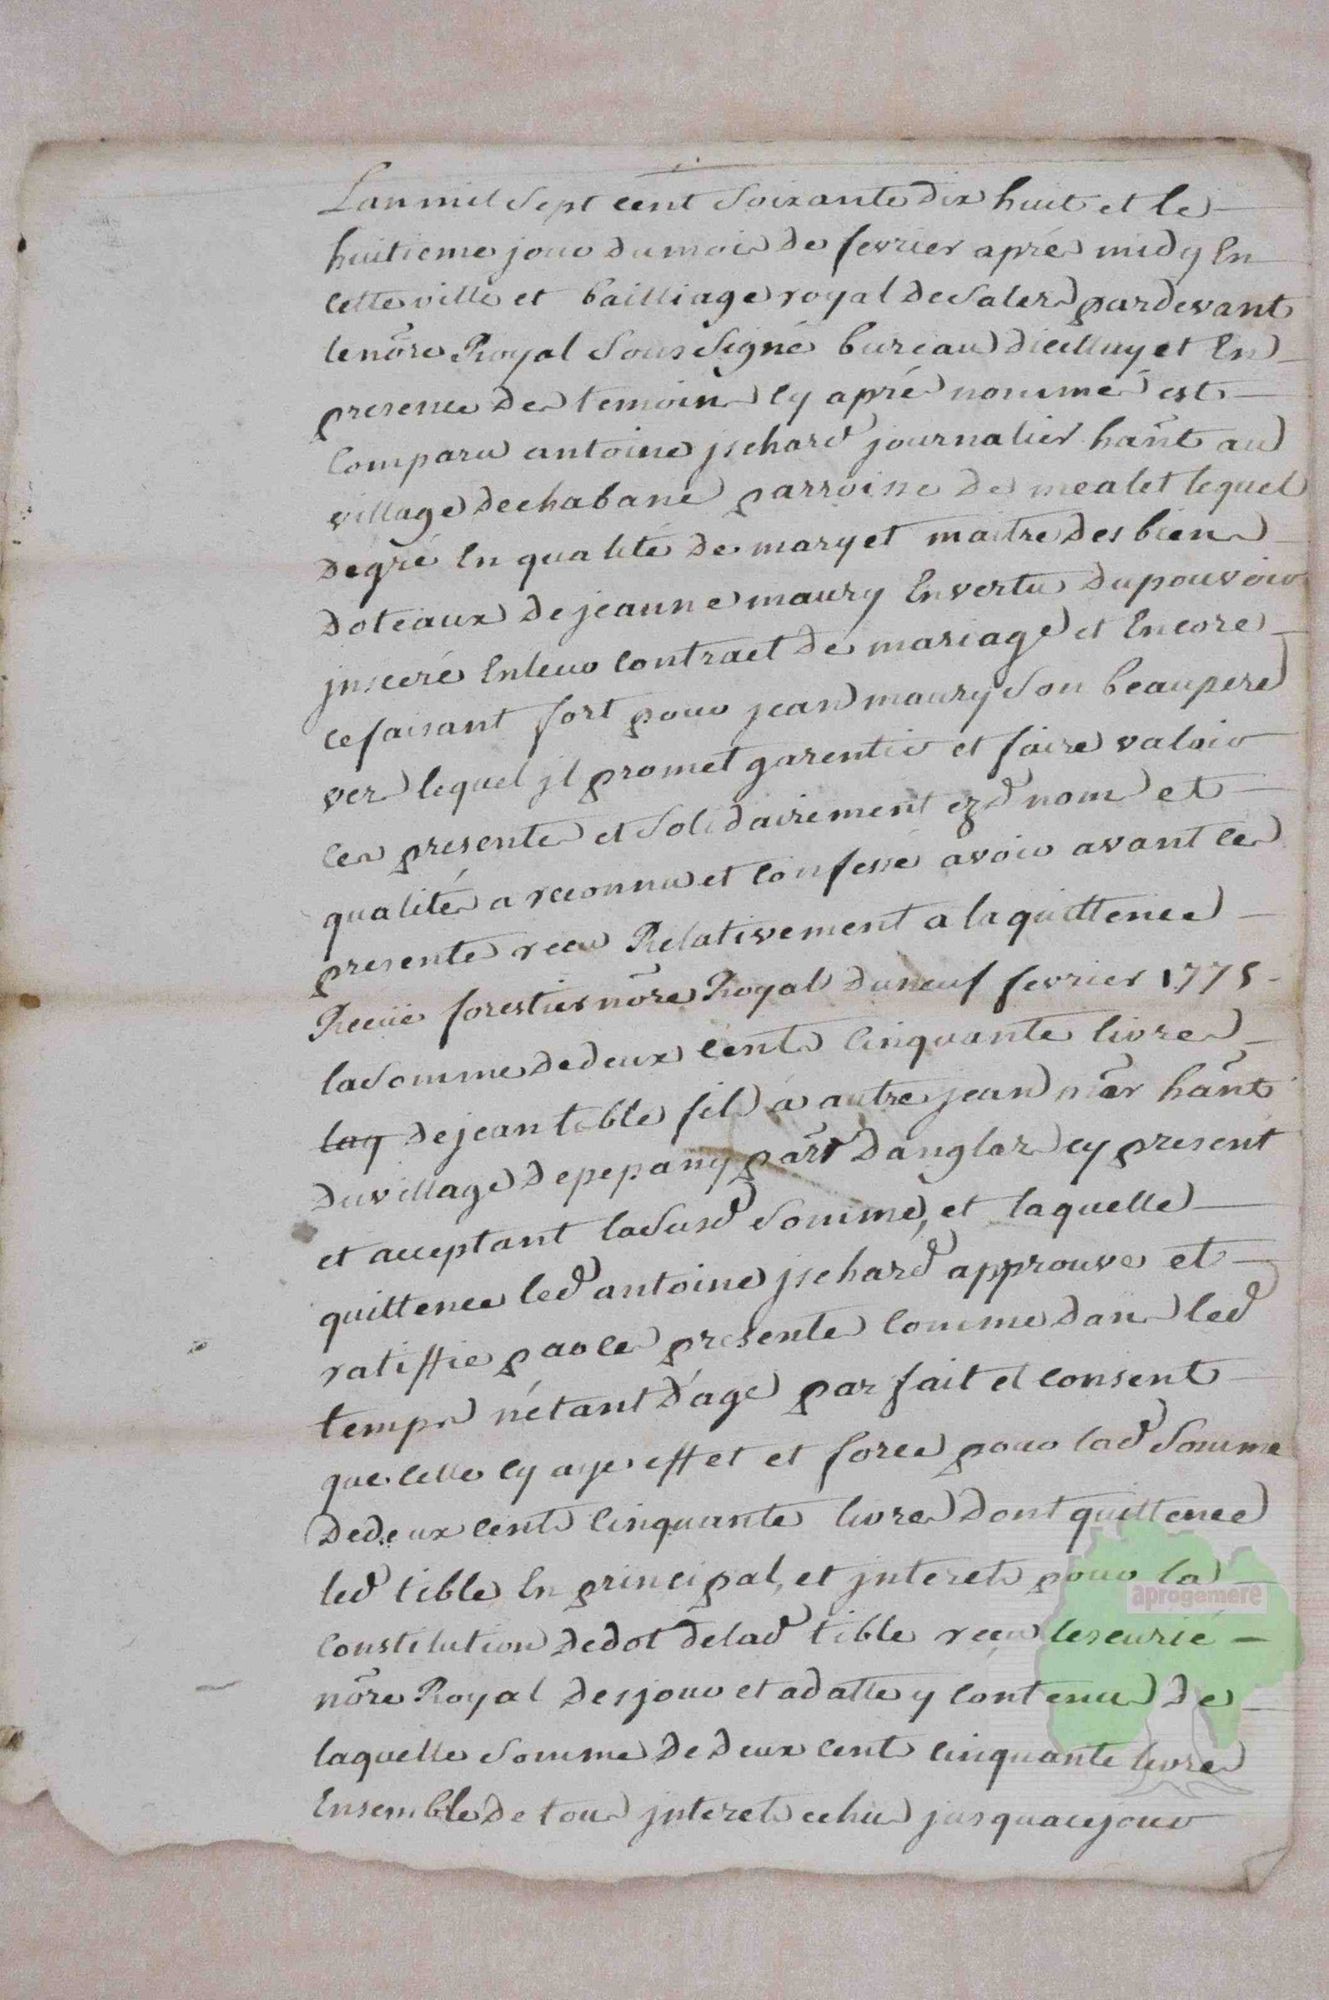 Lan mil Sept cent Soixante dix huit et le
huitieme jour du mois de fevrier aprés midy En
cette ville et bailliage royal de Salers pardevant
le nore Royal Sous Signé bureau et En
presence des temoins Cy aprés nommés est
Comparu antoine jschard journalier hant au
village de chabane parroisse de mealet lequel
de gré En qualité de mary et maitre des biens
doteaux de jeanne maury En vertu du pouvoir
jnseré En leur Contract de mariage et Encore
ce faisant fort pour jean maury Son beaupere
vers lequel jl promet garentir et faire valoir
ces presentes et Solidairement ezd noms et
qualités a reconnu et Confessé avoir avant ces
presentes recu Relativement a la quittence
Recue forestier nore Royal du neuf fevrier 1775
la Somme de deux Cents Cinquante livres
laq de jean tible fils à autre jean mar hant
du village de pepany parr d'anglars cy present
et acceptant la Susd Somme, et laquelle
quittence led antoine jschard approuve et
ratiffie par ces presentes Comme dans led
temps n'étant d'age parfait et consent
que celle cy aye effet et force pour lad Somme
de deux cents Cinquante livres dont quittence
led tible En principal, et jnterets pour la
Constitution de dot de lad tible recu
nore Royal des jour et adatte y contenus de
laquelle Somme de deux cents cinquante livres
Ensemble de tous jnterets echus jusqua ce jour
aprogemere